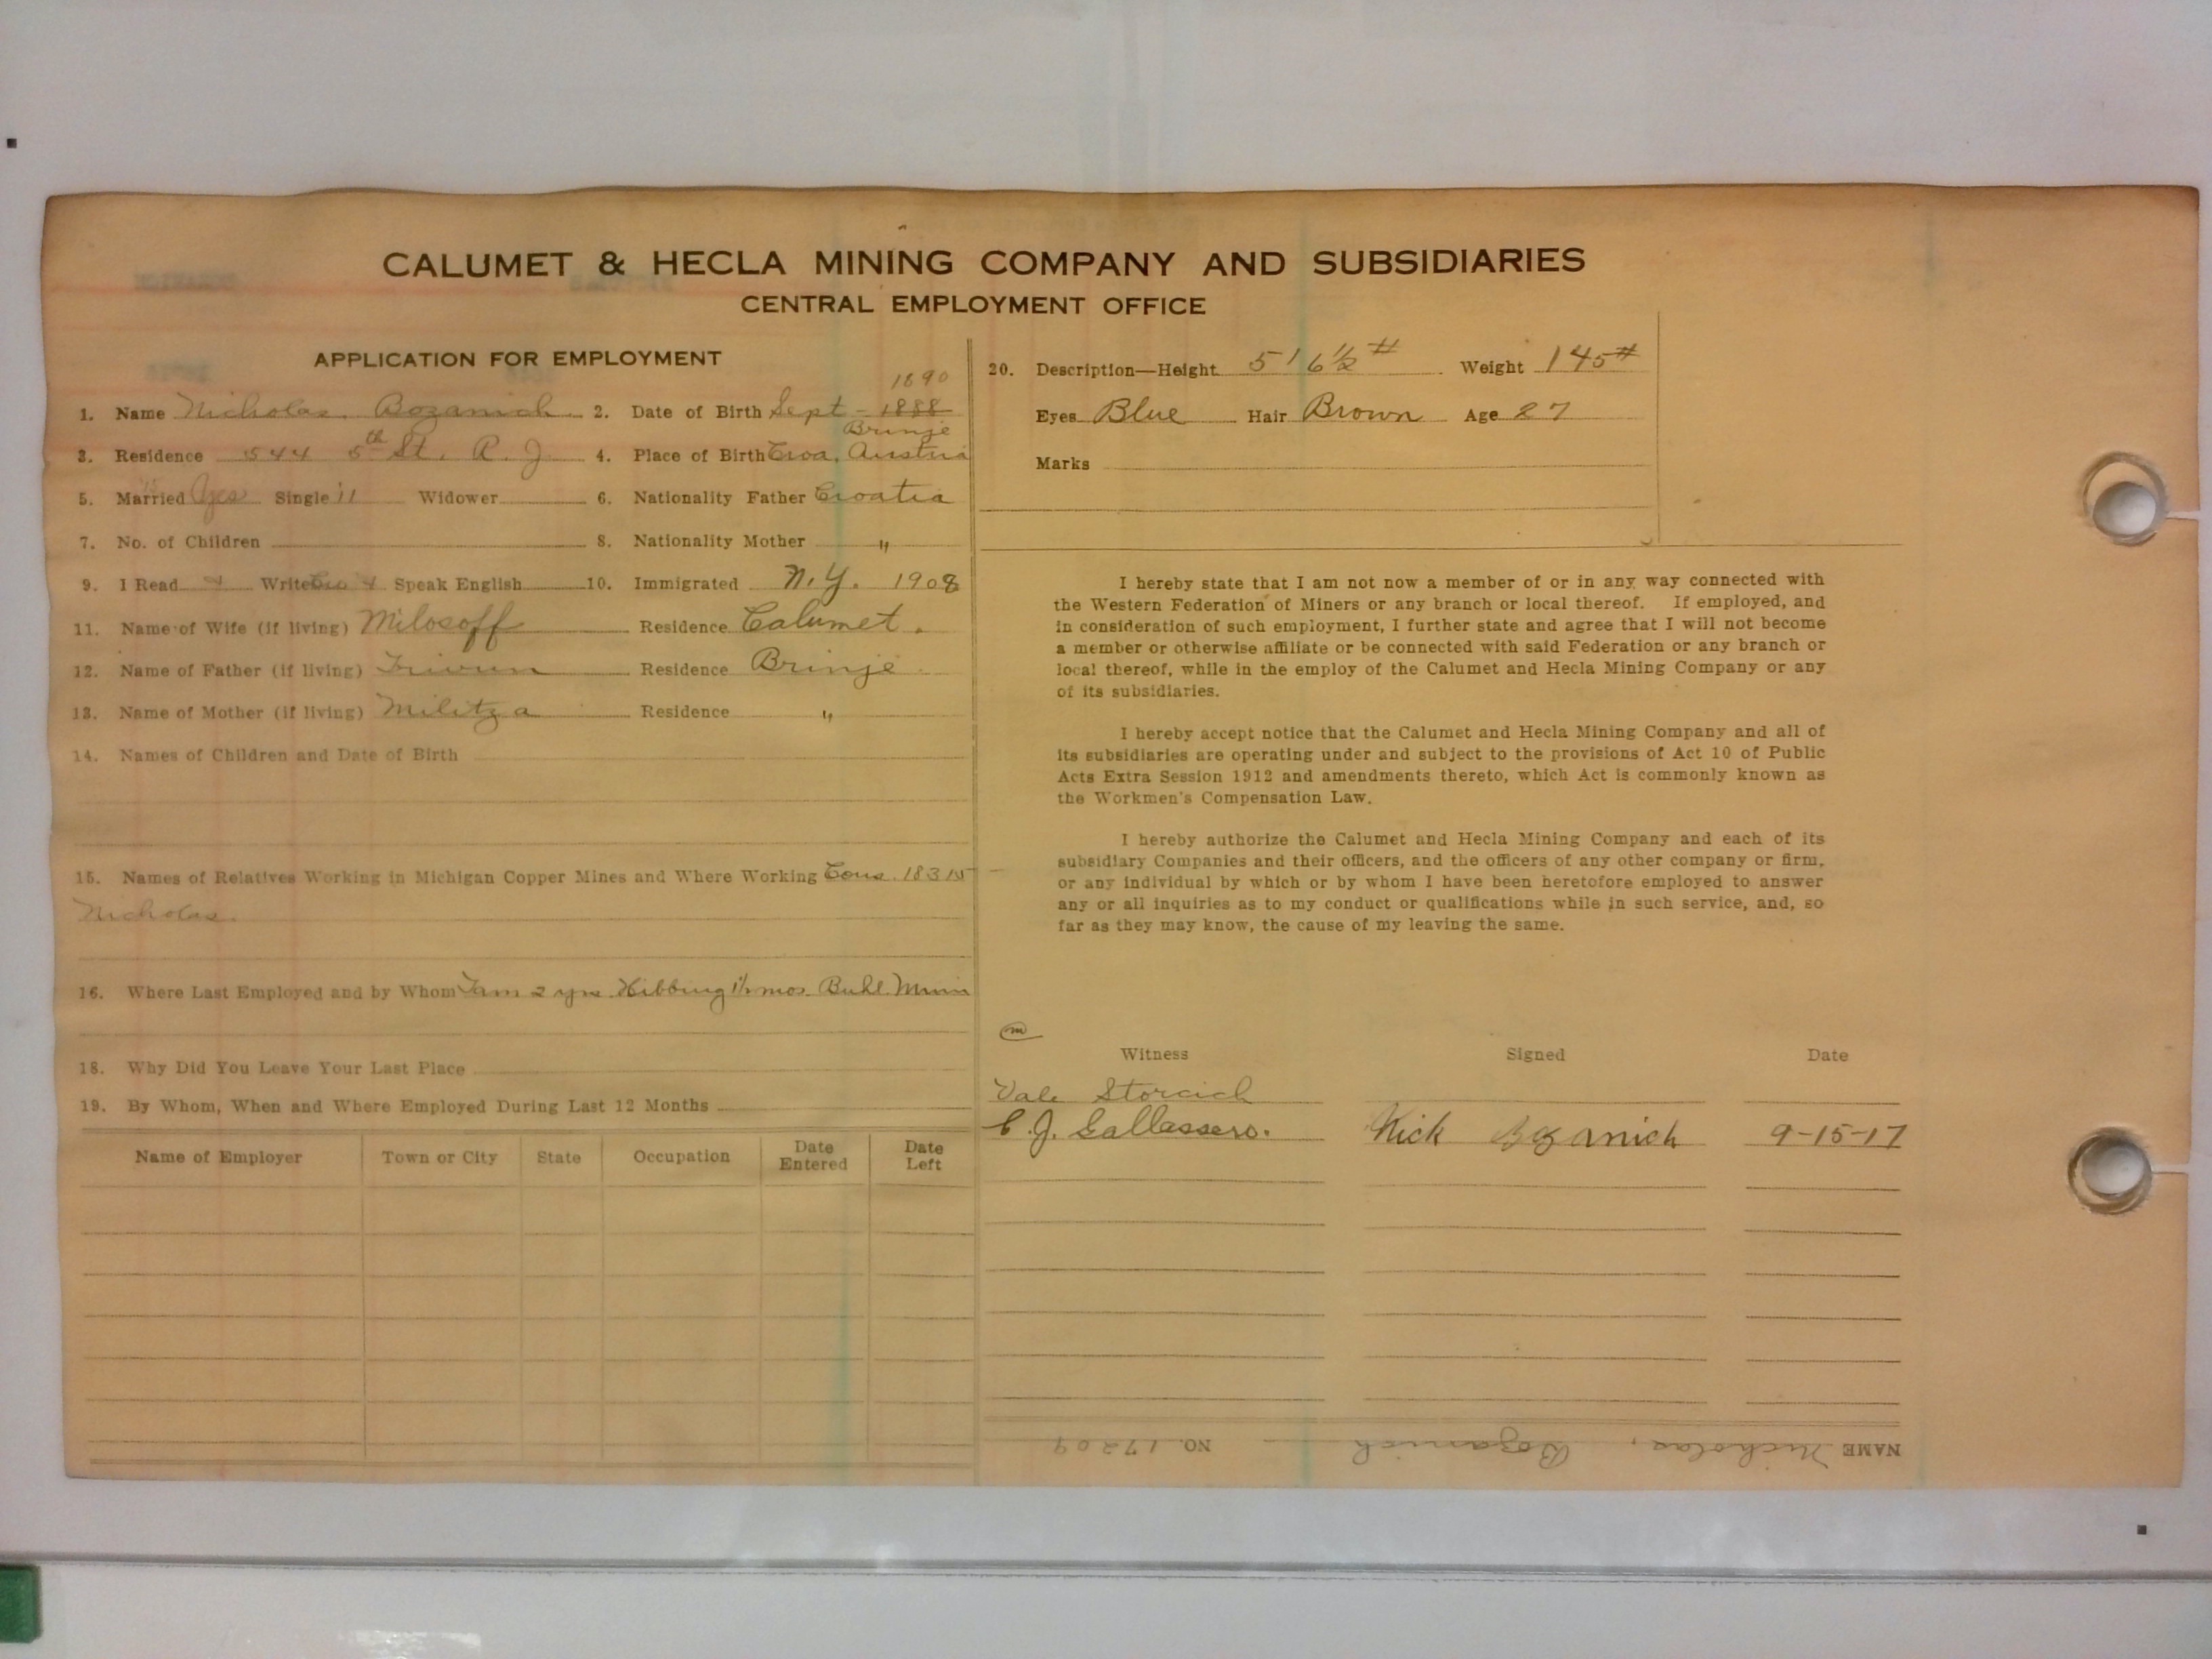 CALUMET & HECLA MINING COMPANY AND SUBSIDIARIES
CENTRAL EMPLOYMENT OFFICE
APPLICATION FOR EMPLOYMENT
1890
1. Name Nicholas Bozanich 2. Date of Birth Sept - 1888
Brinje
3. Residence 544 5th St. R. J. 4. Place of Birth Croa. Austria
5. Married Yes Single Widower 6. Nationality Father Croatia
7. No. of Children 8. Nationality Mother "
9. I Read Write Speak English 10. Immigrated N.Y. 1908
11. Name of Wife (if living) Milosoff Residence Calumet.
12. Name of Father (if living) Residence Brinje
13. Name of Mother (if living) Militza Residence "
14. Names of Children and Date of Birth
15. Names of Relatives Working in Michigan Copper Mines and Where Working Cous. 18315
Nicholas.
16. Where Last Employed and by Whom Tam 2 yrs Hibbing 1½ mos. Buhl. Minn
18. Why Did You Leave Your Last Place
19. By Whom, When and Where Employed During Last 12 Months
Name of Employer Town or City State Occupation Date Entered Date Left
20. Description—Height 5' 6½" Weight 145#
Eyes Blue Hair Brown Age 27
Marks
I hereby state that I am not now a member of or in any way connected with
the Western Federation of Miners or any branch or local thereof. If employed, and
in consideration of such employment, I further state and agree that I will not become
a member or otherwise affiliate or be connected with said Federation or any branch or
local thereof, while in the employ of the Calumet and Hecla Mining Company or any
of its subsidiaries.
I hereby accept notice that the Calumet and Hecla Mining Company and all of
its subsidiaries are operating under and subject to the provisions of Act 10 of Public
Acts Extra Session 1912 and amendments thereto, which Act is commonly known as
the Workmen's Compensation Law.
I hereby authorize the Calumet and Hecla Mining Company and each of its
subsidiary Companies and their officers, and the officers of any other company or firm,
or any individual by which or by whom I have been heretofore employed to answer
any or all inquiries as to my conduct or qualifications while in such service, and, so
far as they may know, the cause of my leaving the same.
m
Witness Signed Date
Vale Storcich
C. J. Gallassero. Nick Bozanich 9-15-17
NAME Nicholas, Bozanich NO. 17209